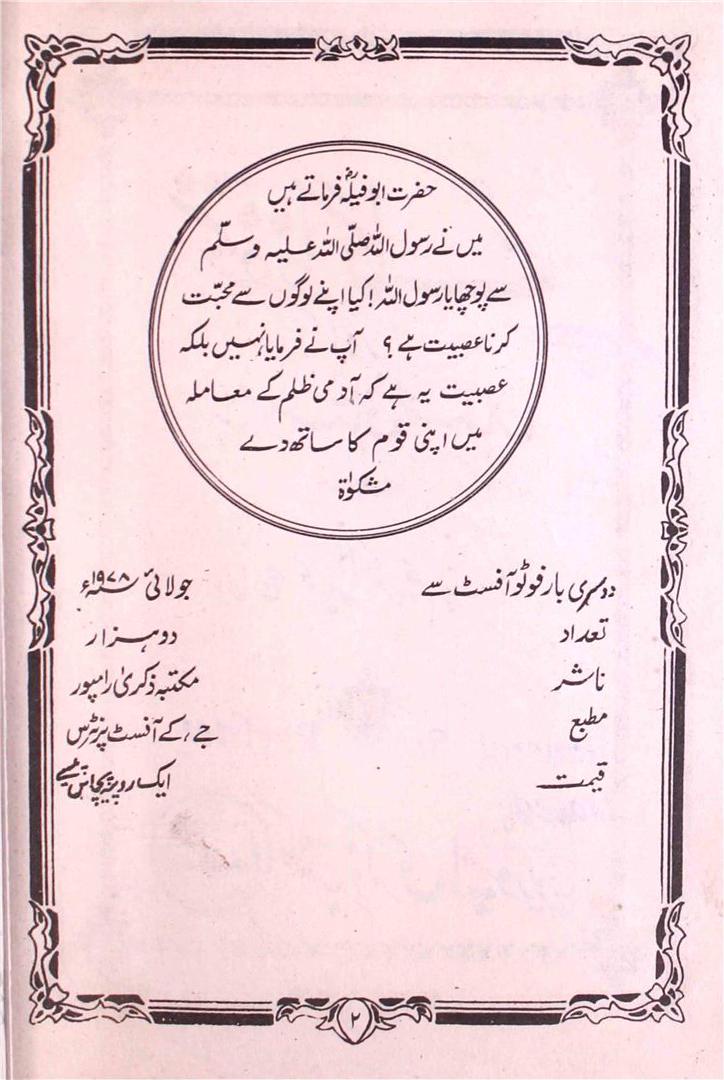 حضرت ابو فیلہؓ فرماتے ہیں
میں نے رسول اللہ صلّی اللہ علیہ وسلّم
سے پوچھا یا رسول اللہ! کیا اپنے لوگوں سے محبّت
کرنا عصبیت ہے؟ آپ نے فرمایا نہیں بلکہ
عصبیت یہ ہے کہ آدمی ظلم کے معاملہ
میں اپنی قوم کا ساتھ دے
مشکوٰۃ
دوسری بار فوٹو آفسٹ سے جولائی ۱۹۷۸ء
تعداد دو ہزار
ناشر مکتبہ ذکریٰ رامپور
مطبع جے، کے آفسٹ پرنٹرس
قیمت ایک روپیہ پچاس پیسے
۲